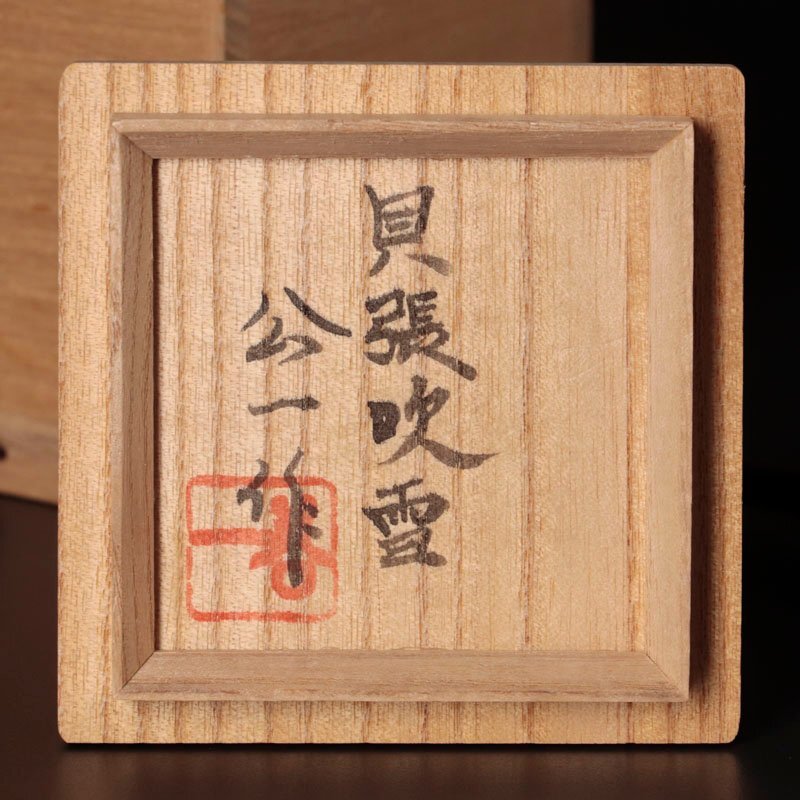 貝張吹雪
公一作